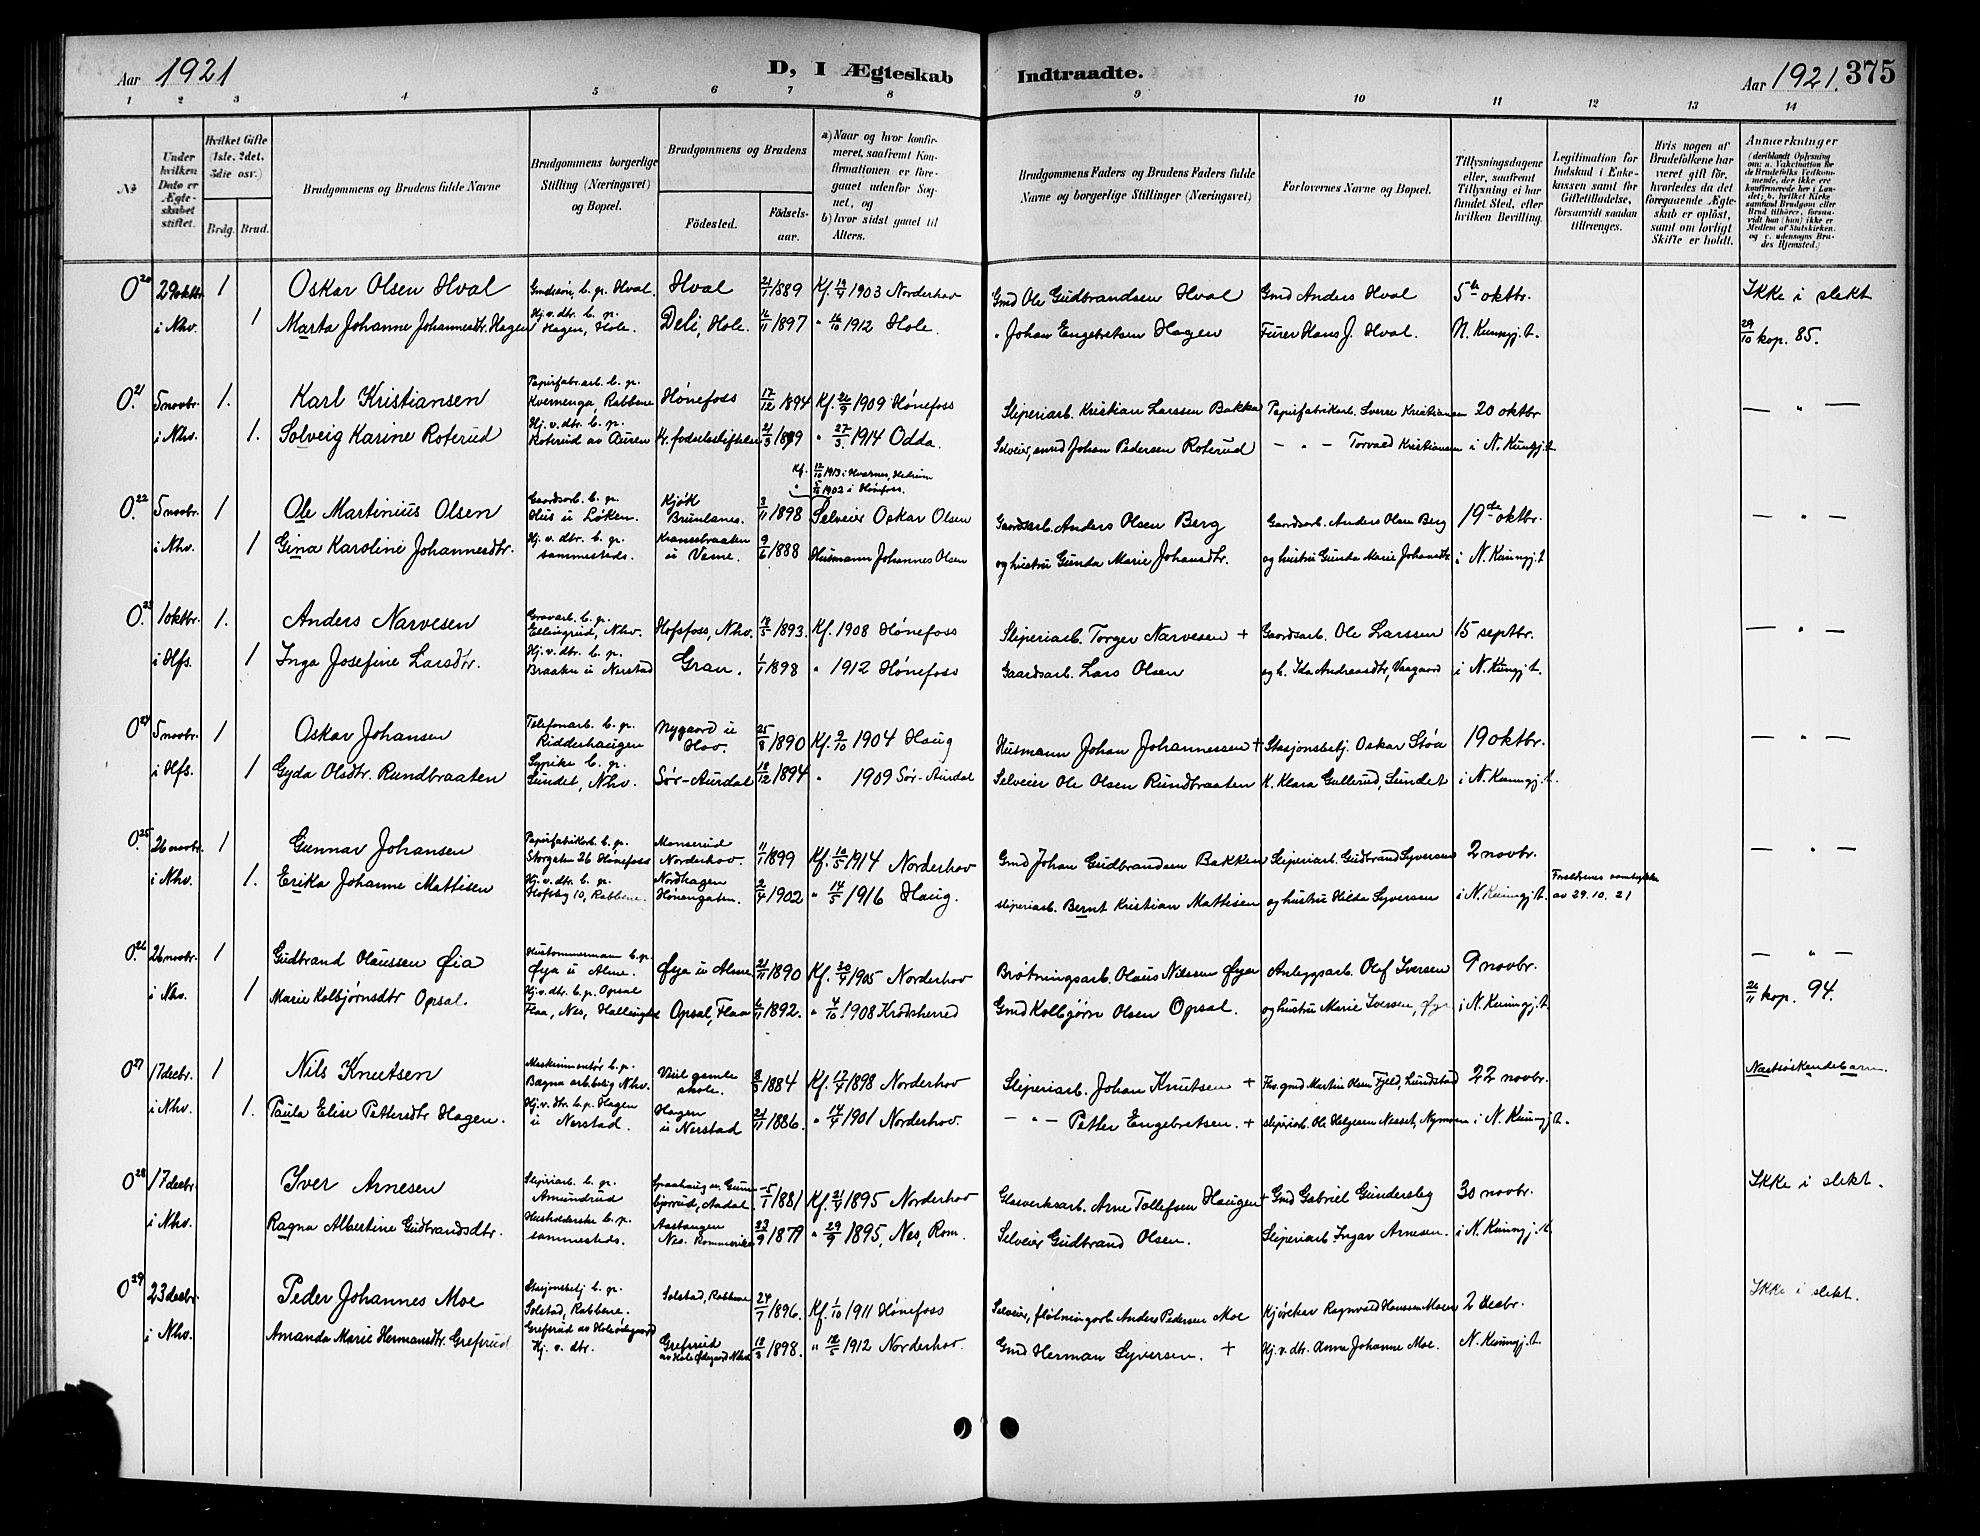 Aar 1921
D, I Ægteskab Indtraadte.
Aar 1921. 375
1 2 3 4 5 6 7 8 9 10 11 12 13 14
No
Under hvilken Dato er Ægteskabet stiftet.
Hvilket Gifte (1ste, 2det, 3die osv.)
Brdg. Brud.
Brudgommens og Brudens fulde Navne
Brudgommens borgerlige Stilling (Næringsvei) og Bopæl.
Brudgommens og Brudens
Fødested.
Fødselsaar.
a) Naar og hvor konfirmeret, saafremt Konfirmationen er foregaaet udenfor Sognet, og
b) hvor sidst gaaet til Alters.
Brudgommens Faders og Brudens Faders fulde Navne og borgerlige Stillinger (Næringsvei)
Forlovernes Navne og Bopæl.
Tillysningsdagene eller, saafremt Tillysning ei har fundet Sted, efter hvilken Bevilling.
Legitimation for Indskud i Enkekassen samt for Giftetilladelse, forsaavidt saadan tiltrænges.
Hvis nogen af Brudefolkene har været gift før, hvorledes da det foregaaende Ægteskab er opløst, samt om lovligt Skifte er holdt.
Anmærkninger
(deriblandt Oplysning om: a. Vakcination for de Brudefolks Vedkommende, der ikke ere konfirmerede her i Landet; b. hvilket Kirkesamfund Brudgom eller Brud tilhører, forsaavidt han (hun) ikke er Medlem af Statskirken. og c. udensogns Brudes Hjemsted.)
O 20 29 oktbr. 1 Oskar Olsen Hval b. p. Hval. Hval 21/1 1889 Kf. 1903 Norderhov Gmd Ole Gudbrandsen Hval Gmd Anders Hval 5te oktbr. Ikke i slekt
i Nhv. 1 Marta Johanne Johannesdtr. Hagen Hj. v. dtr. b. p. Hagen, Hole. Deli, Hole 16/11 1897 " 1912 Hole. " Johan Engebretsen Hagen Furer Hans J. Hval. N. Kunngj.t. 29/10 kop. 85.
O 21 5 novbr. 1. Karl Kristiansen Papirfabr.arb. b. p. Kvernenga, Rabbene Hønefoss 17/12 1894 Kf. 26/9 1909 Hønefoss Sliperiarb. Kristian Larssen Bakka Papirfabrikarb. Sverre Kristiansen 20 oktbr — " —
i Nhv. 1. Solveig Karine Roterud Hj. v. dtr. b. p. Roterud av Buren Kr. fødselsstiftelse 21/3 1899 " 27/5 1914 Odda. Selveier, smed Johan Pedersen Roterud — " — Torvald Kristiansen i N. Kunngj.t.
Kf. 12/10 1913 i Hvarnes, Hedrum
" 5/10 1902 i Hønefoss.
O 22 5 novbr. 1 Ole Martinius Olsen Gaardsarb. b. p. Hus u Løken. Kjøk Brunlanes. 3/11 1898 Selveier Oskar Olsen Gaardsarb. Anders Olsen Berg Gaardsarb. Anders Olsen Berg 19de oktbr. — " —
i Nhv. 1 Gina Karoline Johannesdtr. Hj. v. dtr. b. p. sammesteds. u Vesme. 9/6 1888 Husmann Johannes Olsen og hustru Gunda Marie Johansdtr. og hustru Gunda Marie Johansdtr i N. Kunngj.t
O 23 1 oktbr. 1. Anders Narvesen Gravarb. b. p. Ellingsrud, Nhv. Hofsfoss, Nhv. 18/5 1893. Kf. 1908 Hønefoss Sliperiarb. Torger Narvesen + Gaardsarb. Ole Larssen 15 septbr. — " —
i Hfs. 1 Inga Josefine Larsdtr. Hj. v. dtr. b. p. Braaten u Nerstad Gran. 1/1 1898 " 1912 Hønefoss Gaardsarb. Lars Olsen og h. Ida Andreasdtr, Vaagaard i N. Kungj.t.
O 24 5 novbr. 1 Oskar Johansen Telefonarb. b. p. Ridderhaugen Nygaard u Hov. 25/8 1890 Kf. 9/10 1904 Haug Husmann Johan Johannessen + Stasjonsbetj. Oskar Støa 19 oktbr. — " —
i Hfs. 1 Gyda Olsdtr. Rundbraaten Sypike b. p. Sundet, Nhv. Sør-Aurdal 18/12 1894 " 1909 Sør-Aurdal Selveier Ole Olsen Rundbraaten K. Klara Gullerud, Sundet i N. Kunngj.t.
O. 25 26 novbr. 1 Gunnar Johansen Papirfabrikarb. b. p. Storgaten 26 Hønefoss Monserud Norderhov. 11/1 1899 Kf. 10/5 1914 Norderhov Gmd Johan Gudbrandsen Bakken Sliperiarb. Gudbrand Syversen 2 novbr. — " —
i Nhv. 1. Erika Johanne Mattisen Hj. v. dtr. b. p. Hofsbg 10, Rabbene. Nordhagen Hønengaten. 2/4 1902 " 14/5 1916 Haug. sliperiarb. Bernt Kristian Mattisen og hustru Hilda Syversen i N. Kunngj.t. Foreldrenes samtykke av 29. 10. 21
O. 26 26 novbr. 1 Gudbrand Olaussen Øia Hustømmermann b. p. Øya u Alme. Øya u Alme 21/11 1890 Kf. 30/4 1905 Norderhov Brøtningsarb. Olaus Nilssen Øya Anleggsarb. Olef Iversen 9 novbr. — " —
i Nhv. 1 Marie Kolbjørnsdtr Opsal. Hj. v. dtr. b. p. Opsal Flaa, Nes, Hallingdal Opsal, Flaa 6/11 1892. " 4/10 1908 Krødsherred Gmd Kolbjørn Olsen Opsal. og hustru Marie Iversen, Øya i N. Kunngj.t. 26/11 kop. 94.
O 27 17 decbr. 1 Nils Knutsen Maskinmontør b. p. Bægna arbebolig Nhv. Veul gamle skole. 8/3 1884 Kf. 17/4 1898 Norderhov Sliperiarb. Johan Knutsen + Fhv. gmd Martin Olsen Fjeld, Lundstad 22 novbr. Næstsøskendebarn.
i Nhv. 1. Paula Elise Pettersdtr Hagen. Hj. v. dtr. b. p. Hagen u Nerstad. Hagen u Nerstad 21/11 1886. " 14/4 1901 Norderhov. — " — Petter Engebretsen. + sliperiarb. Ole Helgesen Nesset, Nymoen i N. Kunngj.t.
O 28 17 decbr. Iver Arnesen Sliperiarb. b. p. Amundrud Aadal. 5/1 1881 Kf. 21/4 1895 Norderhov Glasverksarb. Arne Tollefsen Haugen + Gmd Gabriel Gundersby 30 novbr. Ikke i slekt.
i Nhv. Ragna Albertine Gudbrandsdtr. Husholderske b. p. sammesteds. Aashaugen Nes. Rommerike 23/9 1879 " 29/9 1895, Nes, Rom. Selveier Gudbrand Olsen. Sliperiarb Ingar Arnesen. i N. Kunngj.t.
O 29 23 decbr. Peder Johannes Moe Stasjonsbetj b. p. Solstad, Rabbene. Solstad, Rabbene 24/7 1896. Kf. 1/10 1911 Hønefoss Selveier, fløtningarb Anders Pedersen Moe Kjørekar Ragnvald Hanssen Moen 2 decbr. Ikke i slekt.
i Nhv. Amanda Marie Hermansdtr. Grefsrud Grefsrud av Holeødegaard Hj. v. dtr. Grefsrud av Hole Ødegaard Nhv. 10/3 1898. " 12/5 1912 Norderhov. Gmd Herman Syversen. + Hj. v. dtr. Anna Johanne Moe. N. Kunngj.t.